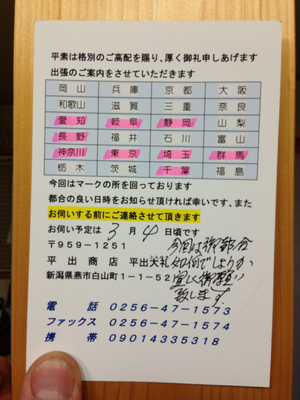 平素は格別のご高配を賜り、厚く御礼申しあげます
出張のご案内をさせていただきます
岡山 兵庫 京都 大阪
和歌山 滋賀 三重 奈良
愛知 岐阜 静岡 山梨
長野 福井 石川 富山
神奈川 東京 埼玉 群馬
栃木 茨城 千葉 福島
今回はマークの所を回っております
都合の良い日時をお知らせ頂ければ幸いです、また
お伺いする前にご連絡させて頂きます
お伺い予定は 3月 4日頃です
〒959-1251
平出商店 平出
新潟県燕市白山町1-1-52
今回は御都合
如何でしょうか
宜しく御願い
致します
電話 0256-47-1573
ファックス 0256-47-1574
携帯 09014335318